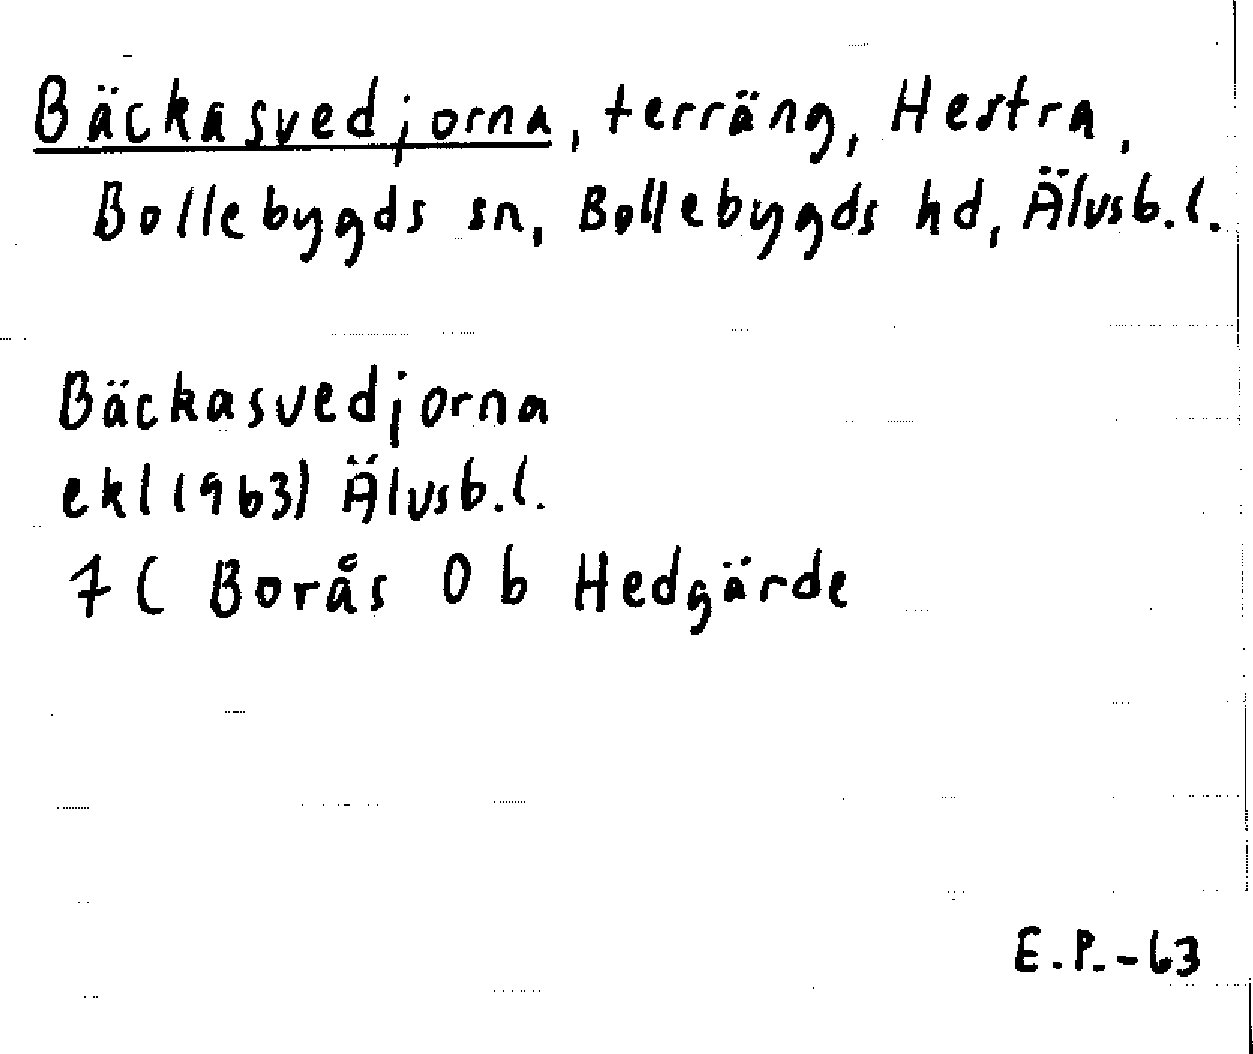 Bäckasvedjorna, terräng, Hestra,
Bollebygds sn, Bollebygds hd, Älvsb.l.
Bäckasvedjorna
ekl (1963) Älvsb.l.
7 C Borås 0 b Hedgärde
E.P.-63